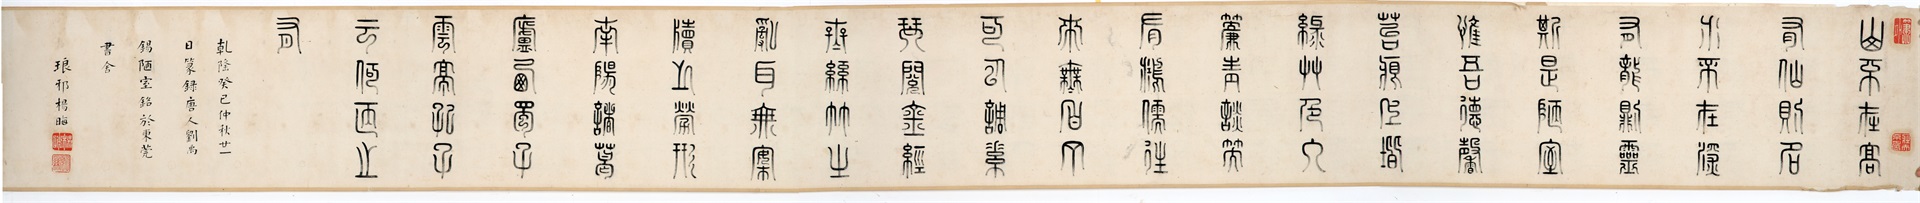 山不在高
有仙則名
水不在深
有龍則靈
斯是陋室
惟吾德馨
苔痕上階
綠艸色入
簾青談笑
有鴻儒往
來無白丁
可以調素
琴閱金經
無絲竹之
亂耳無案
牘之勞形
南陽諸葛
廬西蜀子
雲亭孔子
云何陋之
有
乾隆癸巳仲秋廿一
日篆録唐人劉禹
錫陋室銘於東莞
書舍
琅邪楊